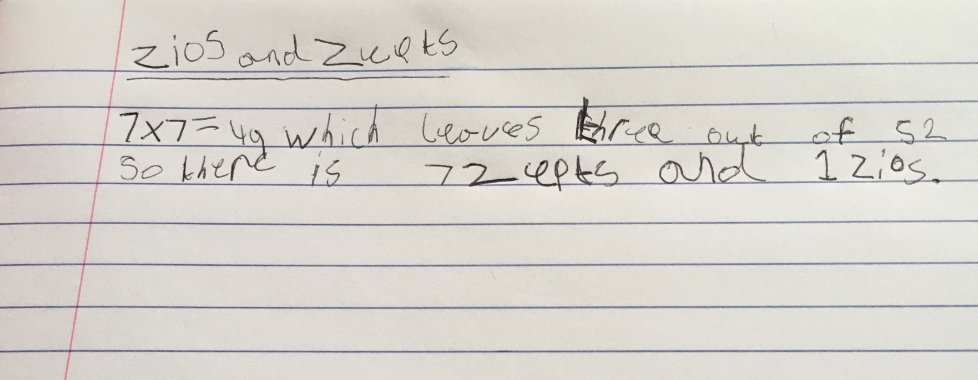 Zios and Zcepts
7x7=49 which leaves three out of 52
So there is 7 Zcepts and 1 Zios.